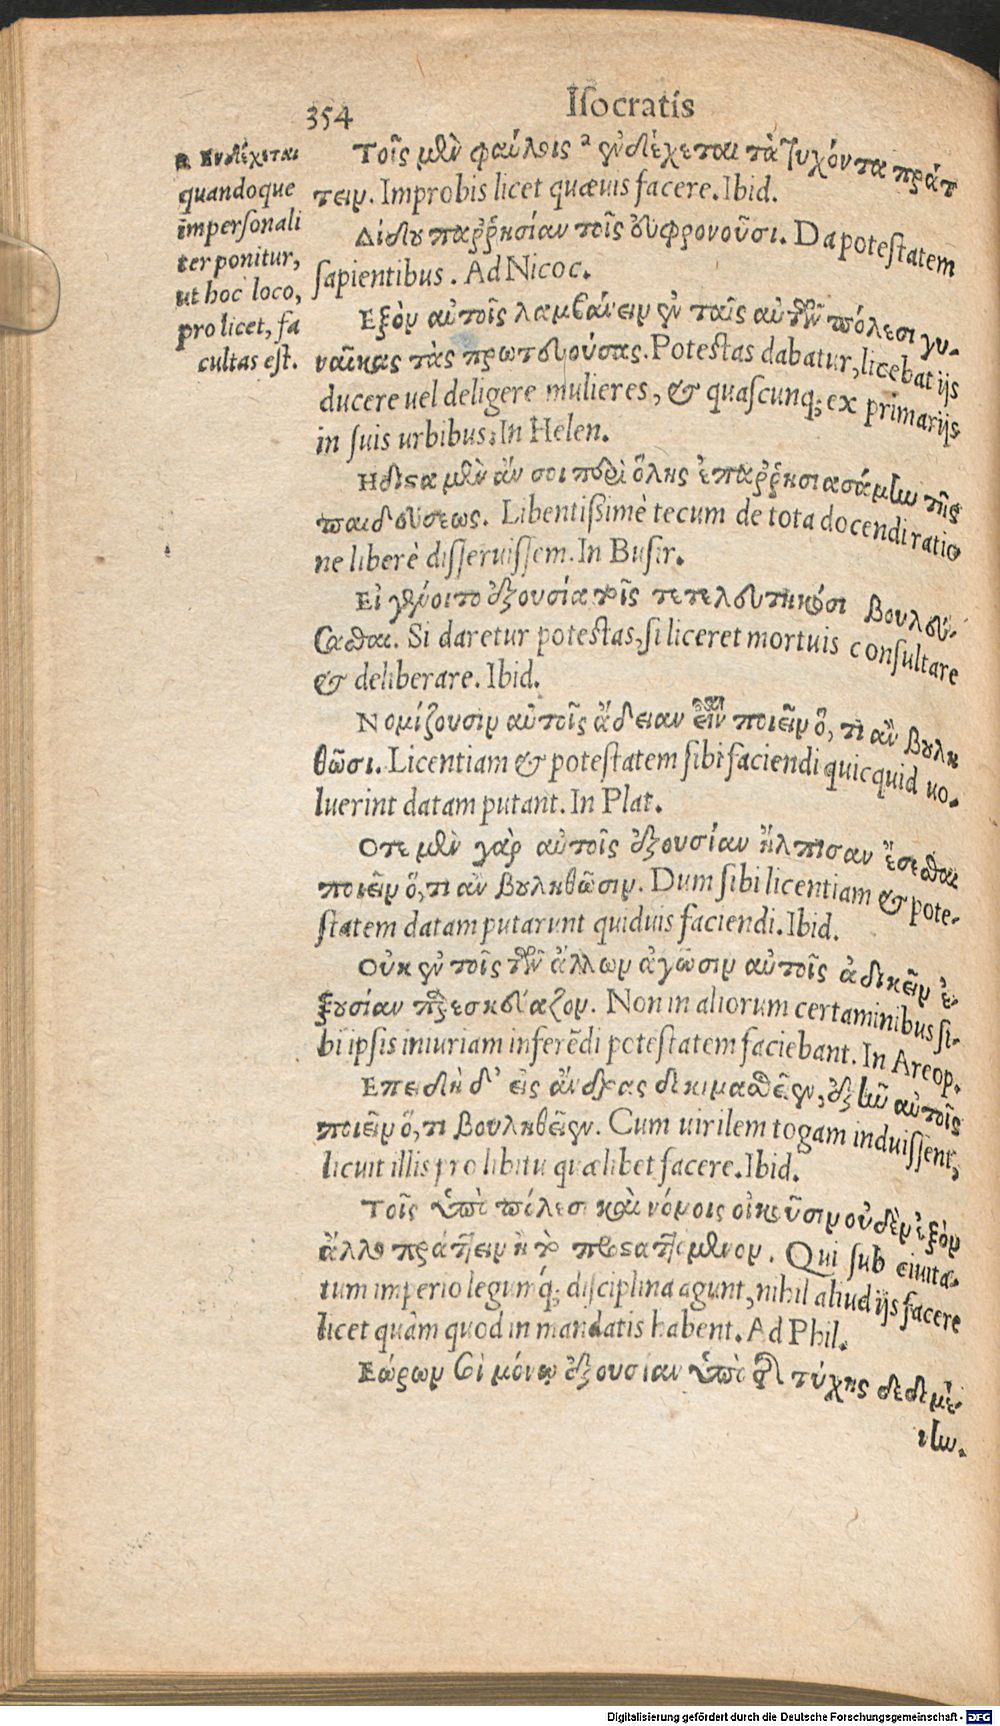 354
Isocratis
a Ενδέχεται
quandoque
impersonali
ter ponitur,
ut hoc loco,
pro licet, fa
cultas est.
Τοῖς μὲν φαύλοις a ἐνδέχεται τὰ τυχόντα πράτ
τειν. Improbis licet quæuis facere. Ibid.
Δίδου παῤῥησίαν τοῖς εὐφρονοῦσι. Da potestatem
sapientibus. Ad Nicoc.
Εξὸν αὐτοῖς λαμβάνειν ἐν ταῖς αὑτῶν πόλεσι γυ-
ναῖκας τὰς πρωτευούσας. Potestas dabatur, licebat ijs
ducere uel deligere mulieres, & quascunq; ex primarijs
in suis urbibus. In Helen.
Ηδιστα μὲν ἄν σοι περὶ ὅλης ἐπαῤῥησιασάμην τῆς
παιδεύσεως. Libentissimè tecum de tota docendi ratio
ne liberè disseruissem. In Busir.
Εἰ γένοιτο ἐξουσία τοῖς τετελευτηκόσι βουλεύ-
σασθαι. Si daretur potestas, si liceret mortuis consultare
& deliberare. Ibid.
Νομίζουσιν αὐτοῖς ἄδειαν εἶναι ποιεῖν ὅ, τι ἂν βουλη
θῶσι. Licentiam & potestatem sibi faciendi quicquid uo-
luerint datam putant. In Plat.
Οτε μὲν γὰρ αὐτοῖς ἐξουσίαν ἤλπισαν ἔσεσθαι
ποιεῖν ὅ, τι ἂν βουληθῶσιν. Dum sibi licentiam & pote-
statem datam putarunt quiduis faciendi. Ibid.
Οὐκ ἐν τοῖς τῶν ἄλλων ἀγῶσιν αὐτοῖς ἀδικεῖν ἐ-
ξουσίαν παρεσκεύαζον. Non in aliorum certaminibus si-
bi ipsis iniuriam inferēdi potestatem faciebant. In Areop.
Επειδὴ δ' εἰς ἄνδρας δοκιμασθεῖεν, ἐξῆν αὐτοῖς
ποιεῖν ὅ, τι βουληθεῖεν. Cum uirilem togam induissent,
licuit illis pro libitu quælibet facere. Ibid.
Τοῖς ὑπὸ πόλεσι καὶ νόμοις οἰκοῦσιν οὐδὲν ἐξὸν
ἄλλο πράττειν ἢ τὸ προσταττόμενον. Qui sub ciuita-
tum imperio legumq́; disciplina agunt, nihil aliud ijs facere
licet quàm quod in mandatis habent. Ad Phil.
Εώρων σοὶ μόνῳ ἐξουσίαν ὑπὸ τῆς τύχης δεδομέ-
νην.